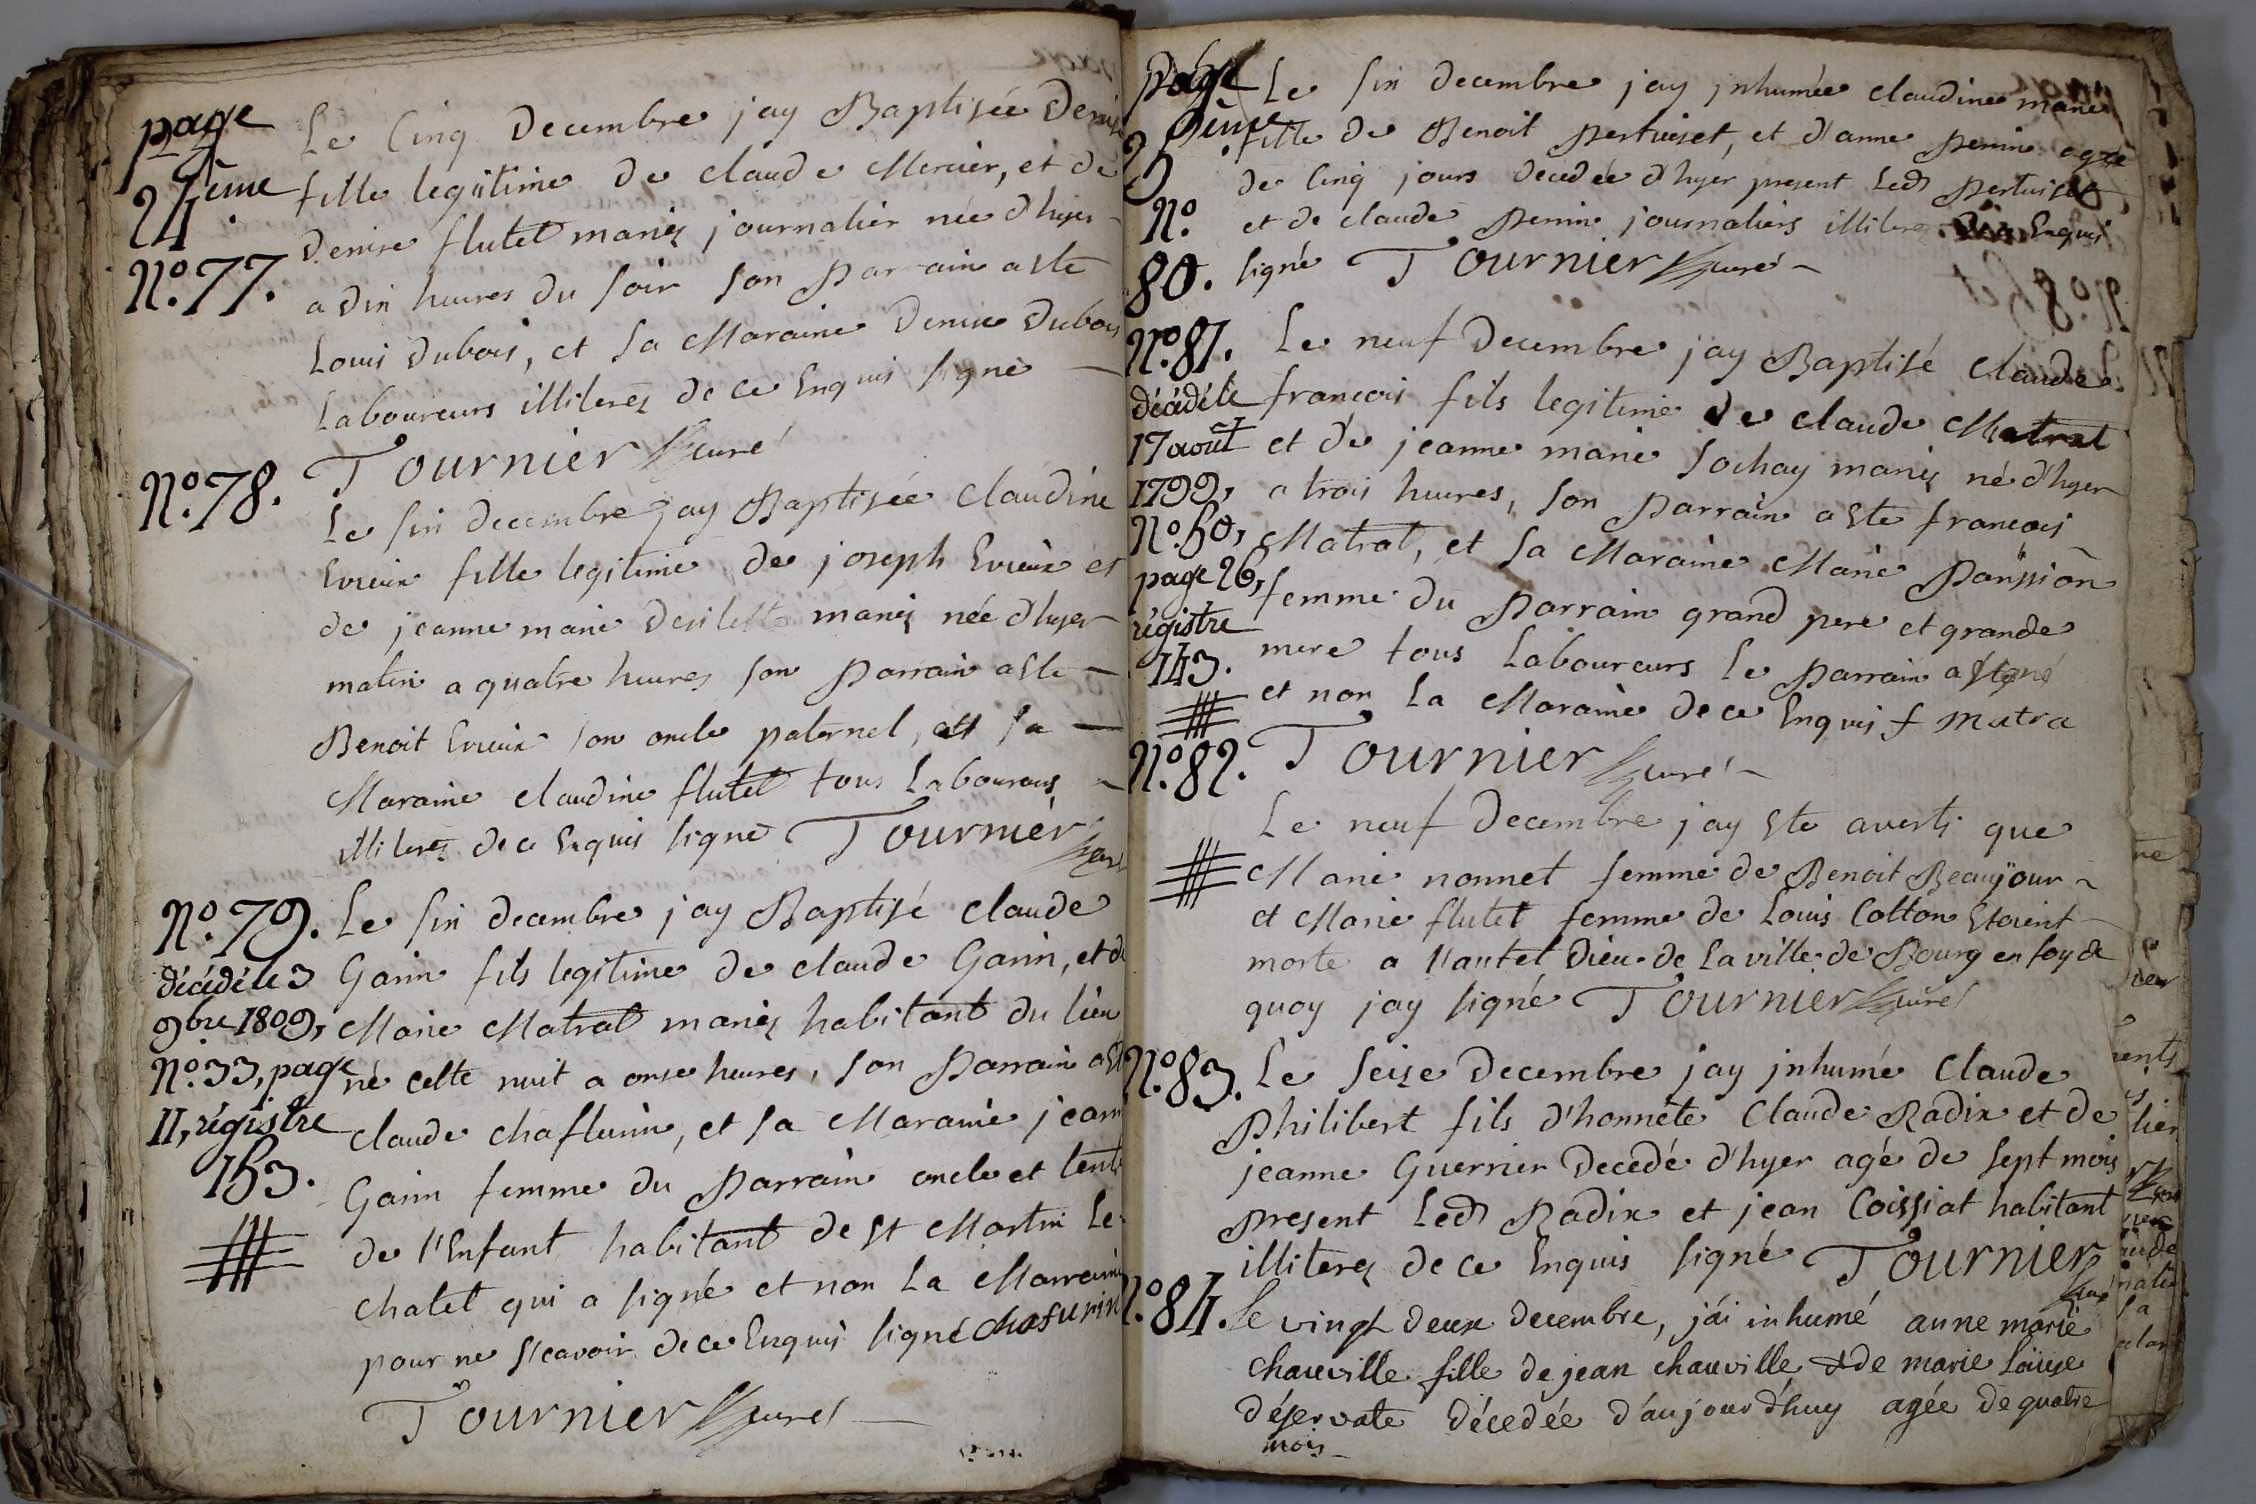 page
24ème
N.° 77.
Le Cinq Decembre jay Baptisée Denise
fille legitime de claude Mercier, et de
Denise flutet mariez journalier née d'hyer
a dix heures du soir son Parrain a este
Louis Dubois, et sa Maraine Denise Dubois
Laboureurs illiterez de ce Enquis signé
Tournier curé
N.° 78.
Le six decembre jay Baptisée Claudine
Evieux fille legitime de joseph Evieux et
de jeanne marie mariez née d'hyer
matin a quatre heures son Parrain a este
Benoit Evieux son oncle paternel, et sa
Maraine claudine flutet tous Laboureurs
illiterez de ce Enquis signé Tournier curé
N.° 79.
décédé le 3
9bre 1809,
N.° 33, page
11, régistre
153.
Le six decembre jay Baptisé claude
Garin fils legitime de claude Garin, et de
Marie Matrat mariez habitant du lieu
né cette nuit a onse heures, son Parrain a este
claude chaflurin, et sa Maraine jeanne
Garin femme du Parrain oncle et tente
de l'Enfant habitant de St Martin le
chatel qui a signé et non la Marraine
pour ne sçavoir de ce Enquis signé chafurin
Tournier curé
page
25ème
N.°
80.
Le six decembre jay jnhumée claudine marie
fille de Benoit Pertuiset, et d'anne Perrin agée
de Cinq jours decedée d'hyer present Led Pertuiset
et de claude Perrin journaliers illiterez de ce Enquis
signé Tournier curé
N.° 81.
décédé le
17 août
1799,
N.° 50,
page 26,
régistre
143.
Le neuf Decembre jay Baptisé Claude
francois fils legitime de claude Matrat
et de jeanne marie Sochay mariez né d'hyer
a trois heures, son Parrain a este francois
Matrat, et sa Maraine Marie Paüssion
femme du Parrain grand pere et grande
mere tous Laboureurs le Parrain a signé
et non la Maraine de ce Enquis f matra
Tournier curé
N.° 82.
Le neuf Decembre jay Este averti que
Marie nonnet femme de Benoit Beaujour
et Marie flutet femme de Louis Cotton Etoient
morte a l'autel Dieu de la ville de Bourg en foy de
quoy jay signé Tournier curé
N.° 83.
Le seize Decembre jay jnhumé Claude
Philibert fils d'honnete Claude Radix et de
jeanne Guerrier Decedé d'hyer agé de sept mois
present Led Radix et jean Coissiat habitant
illiterez de ce Enquis signé Tournier curé
N.° 84.
Le vingt deux decembre, jái inhumé anne marie
chauville fille de jean chauville & de marie Loüise
déservate décedée d'aujourd'huy agée de quatre
mois